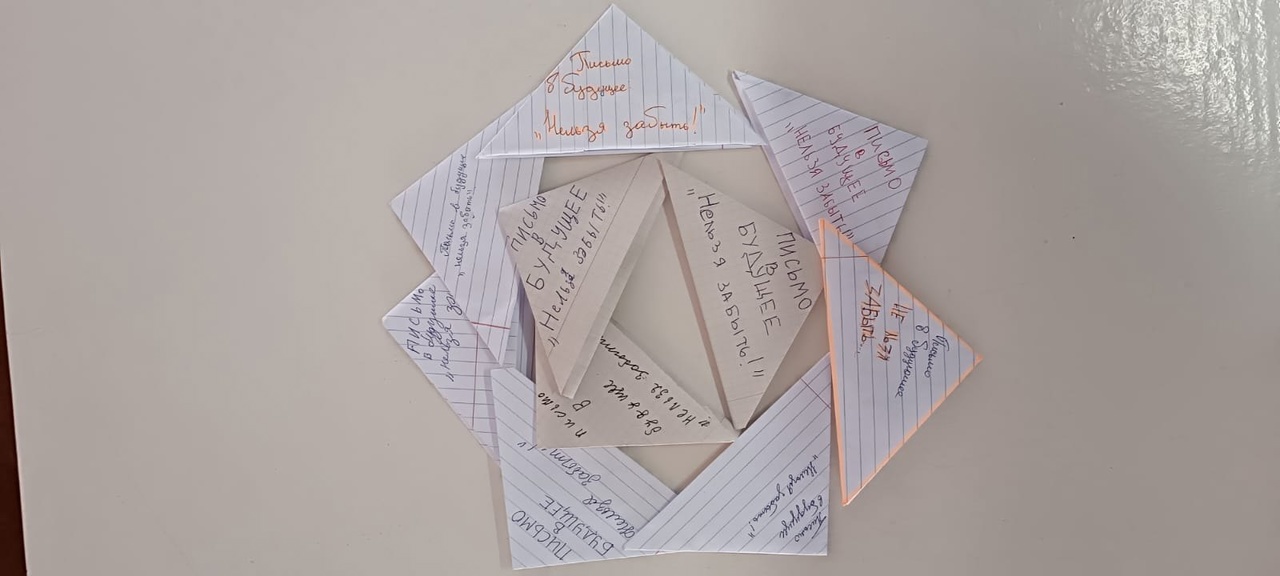 Письмо
в будущее
„Нельзя забыть!"
ПИСЬМО
В
БУДУЩЕЕ
„НЕЛЬЗЯ ЗАБЫТЬ!"
Письмо в будущее
"нельзя забыть"
ПИСЬМО
В
БУДУЩЕЕ
„Нельзя ЗАБЫТЬ!"
ПИСЬМО
В
БУДУЩЕЕ
"Нельзя ЗАБЫТЬ!"
Письмо
в будущее
НЕ
ЗАБЫТЬ...
ПИСЬМО
в будущее
"нельзя за
письмо
В
будущее
"нельзя забыть
ПИСЬМО
В
БУДУЩЕЕ
Нельзя
забыт
Письмо
в будущее
"Нельзя забыть!"